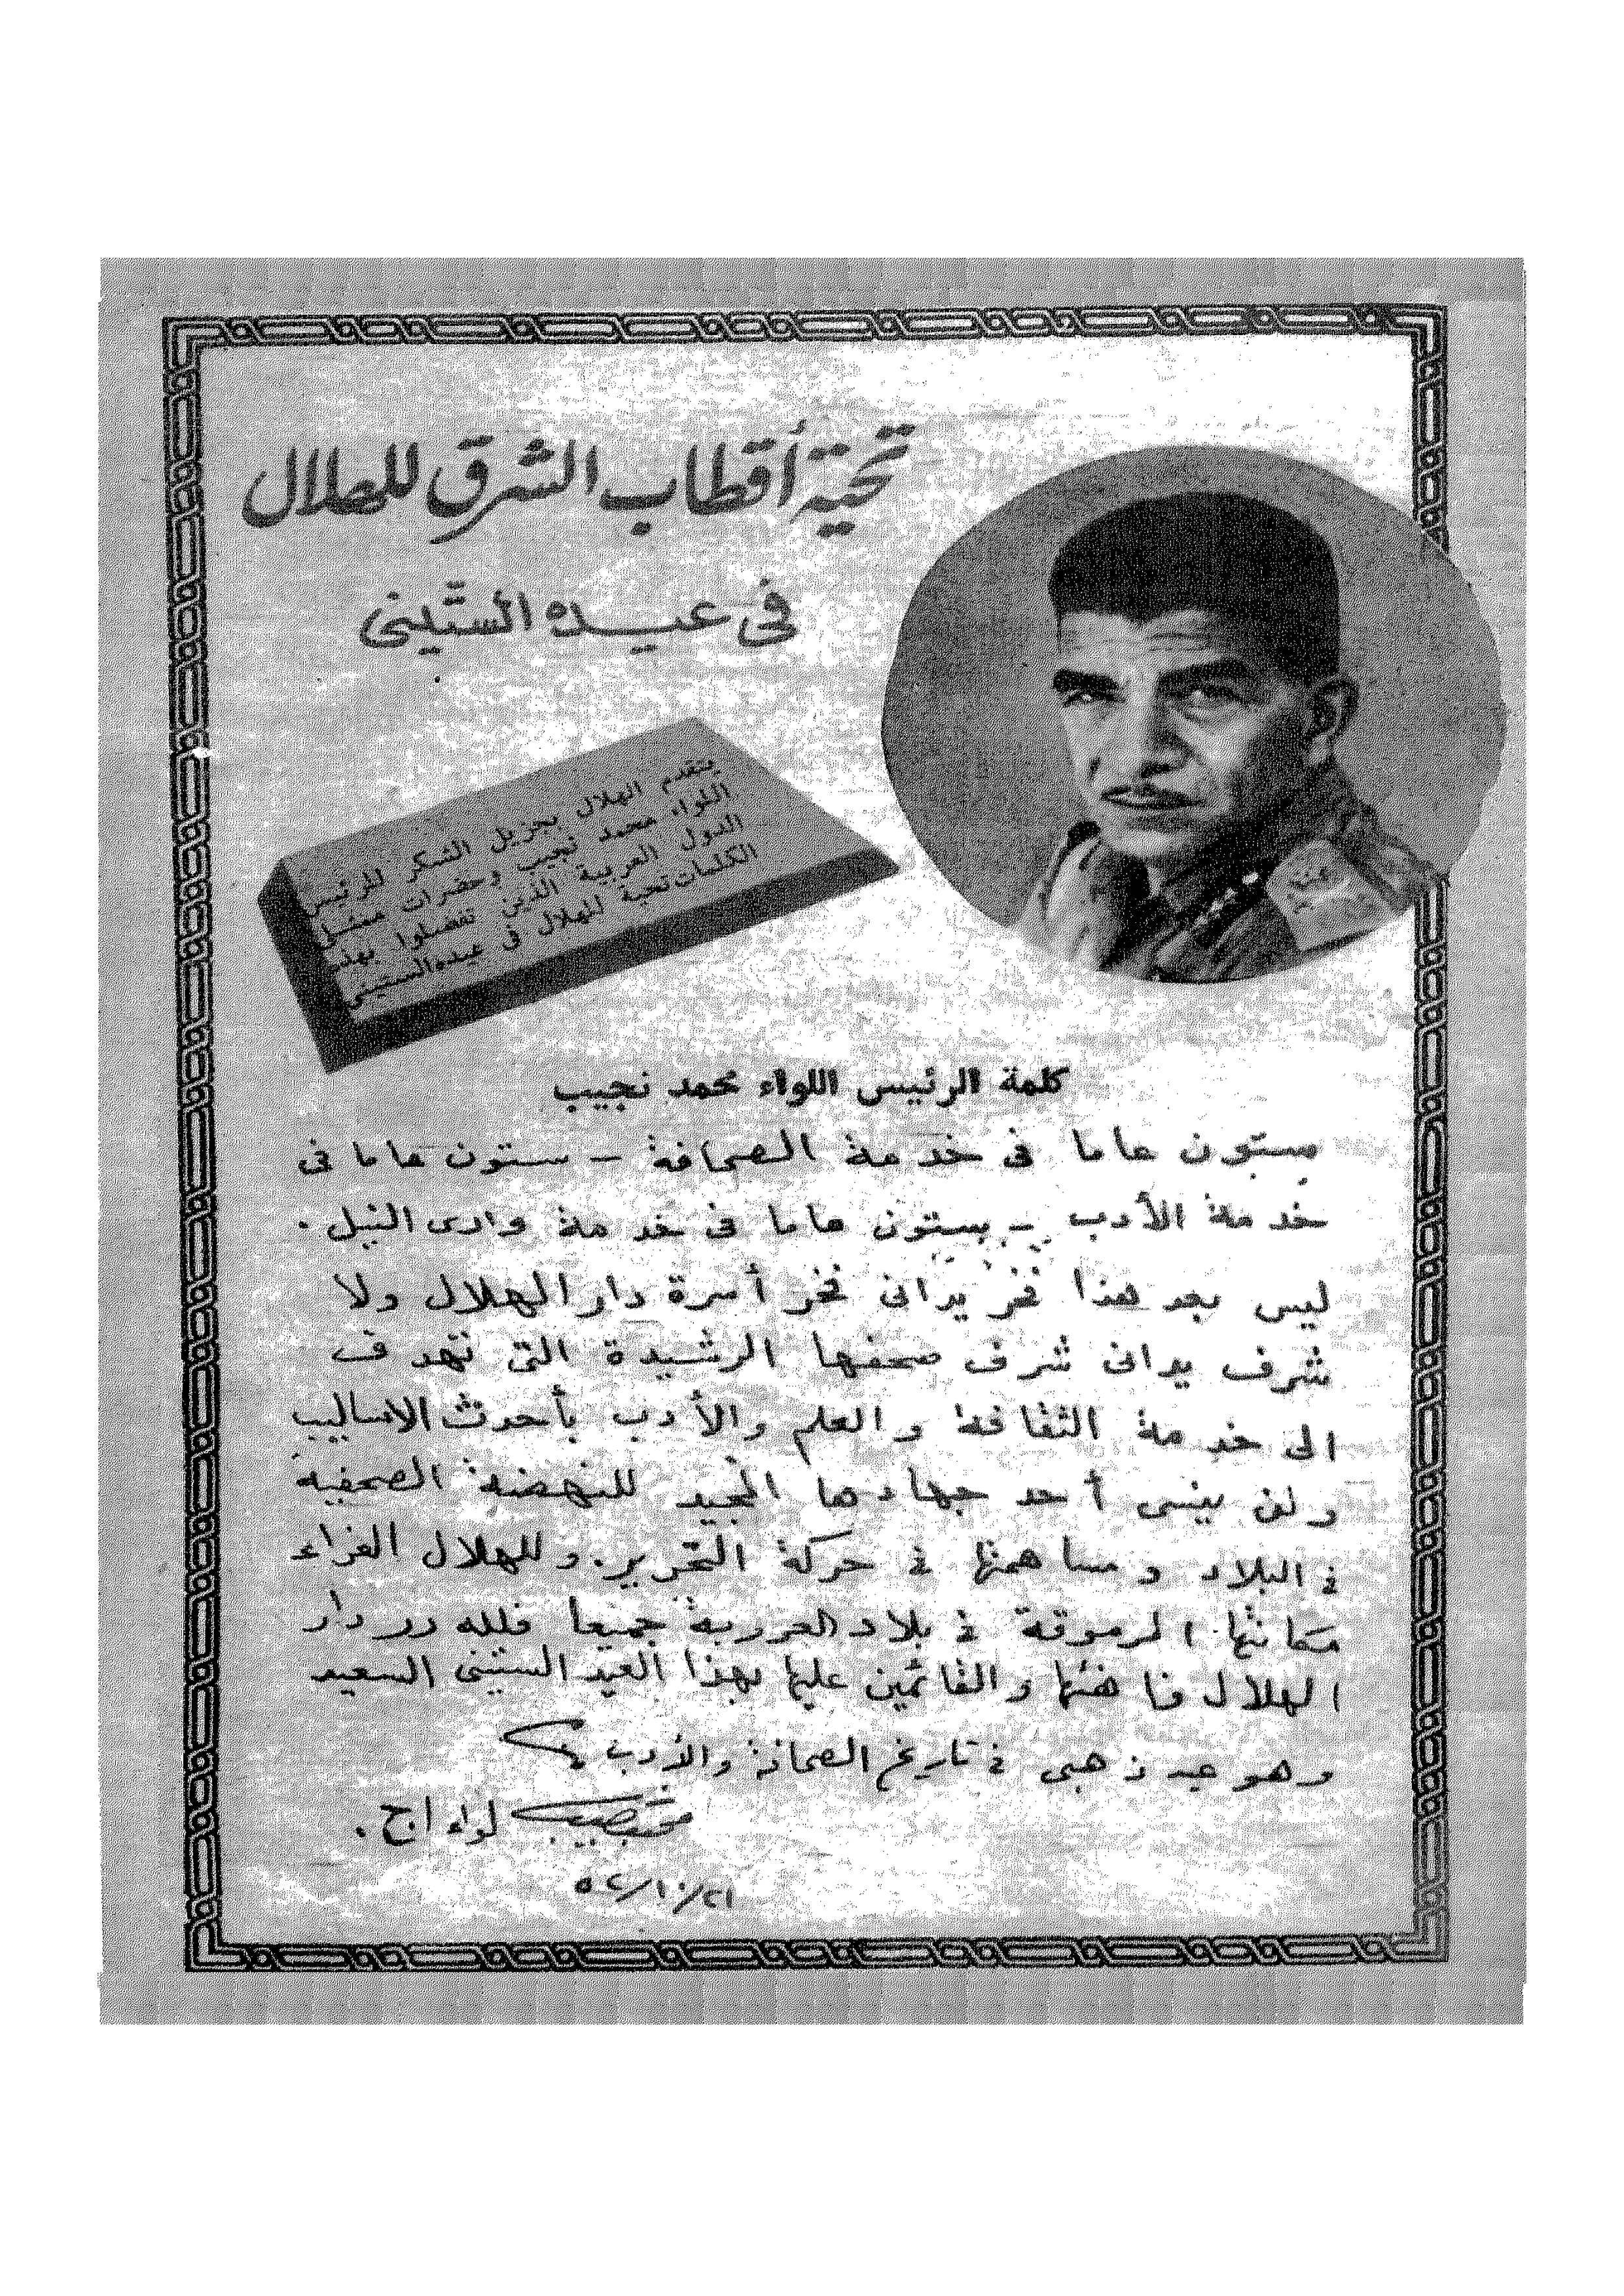 تحية أقطاب الشرق للهلال
فى عيده الستينى
يتقدم الهلال بجزيل الشكر للرئيس
اللواء محمد نجيب وحضرات ممثلى
الدول العربية الذين تفضلوا بهذه
الكلمات تحية للهلال فى عيده الستينى
كلمة الرئيس اللواء محمد نجيب
ستون عاما فى خدمة الصحافة – ستون عاما فى
خدمة الأدب – ستون عاما فى خدمة وادى النيل .
ليس بعد هذا فخر يدانى فخر أسرة دار الهلال ولا
شرف يدانى شرف صحفها الرشيدة التى تهدف
الى خدمة الثقافة والعلم والأدب بأحدث الاساليب
ولن ينسى أحد جهادها المجيد للنهضة الصحفية
فى البلاد ومساهمتها فى حركة التحرير . وللهلال الغراء
مكانتها المرموقة فى بلاد العروبة جميعا فلله در دار
الهلال فاهنئها والقائمين عليها بهذا العيد الستينى السعيد
وهو عيد ذهبى فى تاريخ الصحافة والأدب
محمد نجيب لواء اح .
٢١/١٠/٥٢